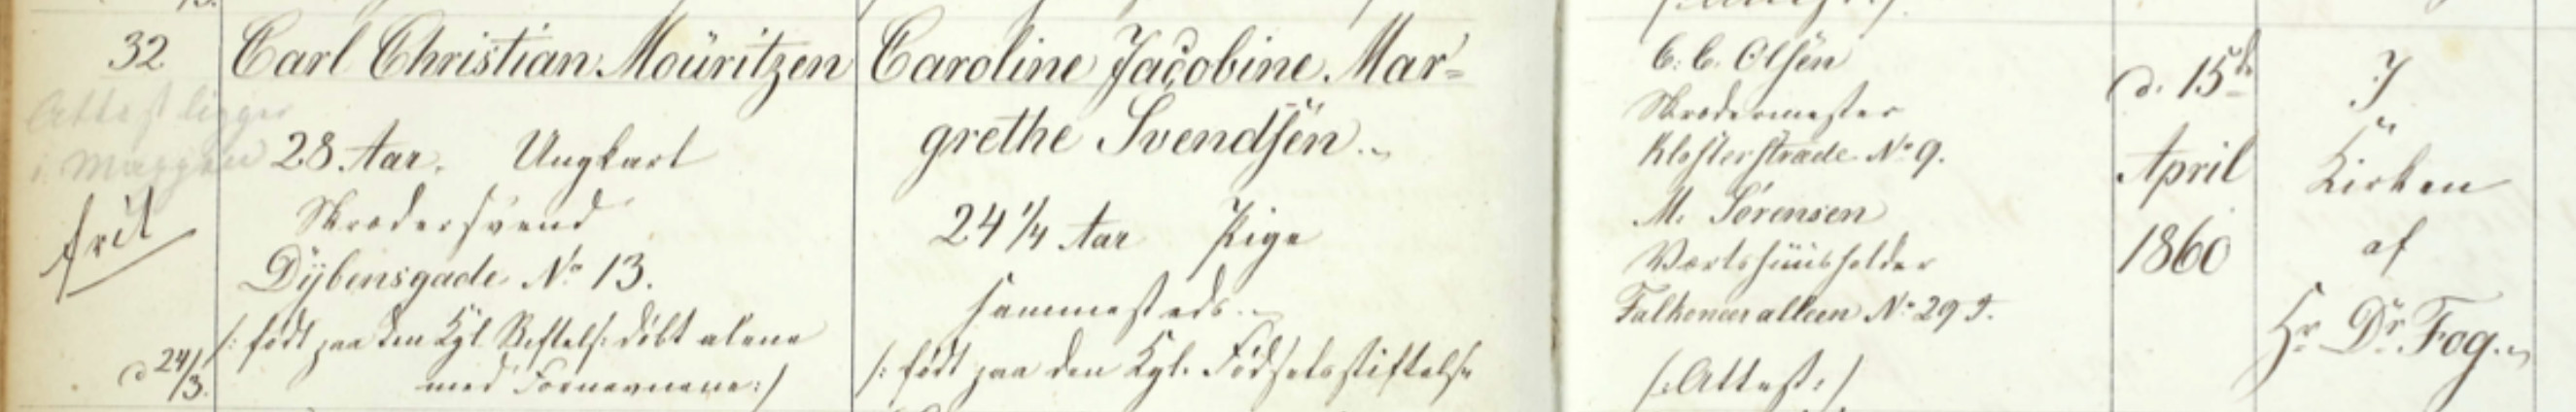 32
Attest ligger
i Mappen
frit
d 24/3.
Carl Christian Mouritzen
28 Aar. Ungkarl
Skrædersvend
Dybensgade No 13.
/: født paa den Kgl Stiftels: döbt alene
med Fornavnene :/
Caroline Jacobine Mar=
grethe Svendsen.
24 1/4 Aar Pige
sammesteds.
/: født paa den Kgl. Födselsstiftelse
C. C. Olsen
Skrædermester
Klosterstræde No 9.
M. Sørensen
Værtshuusholder
Falkoneeralleen No 29
(: Attest :)
d. 15de
April
1860
I
Kirken
af
Hr. Dr. Fog.